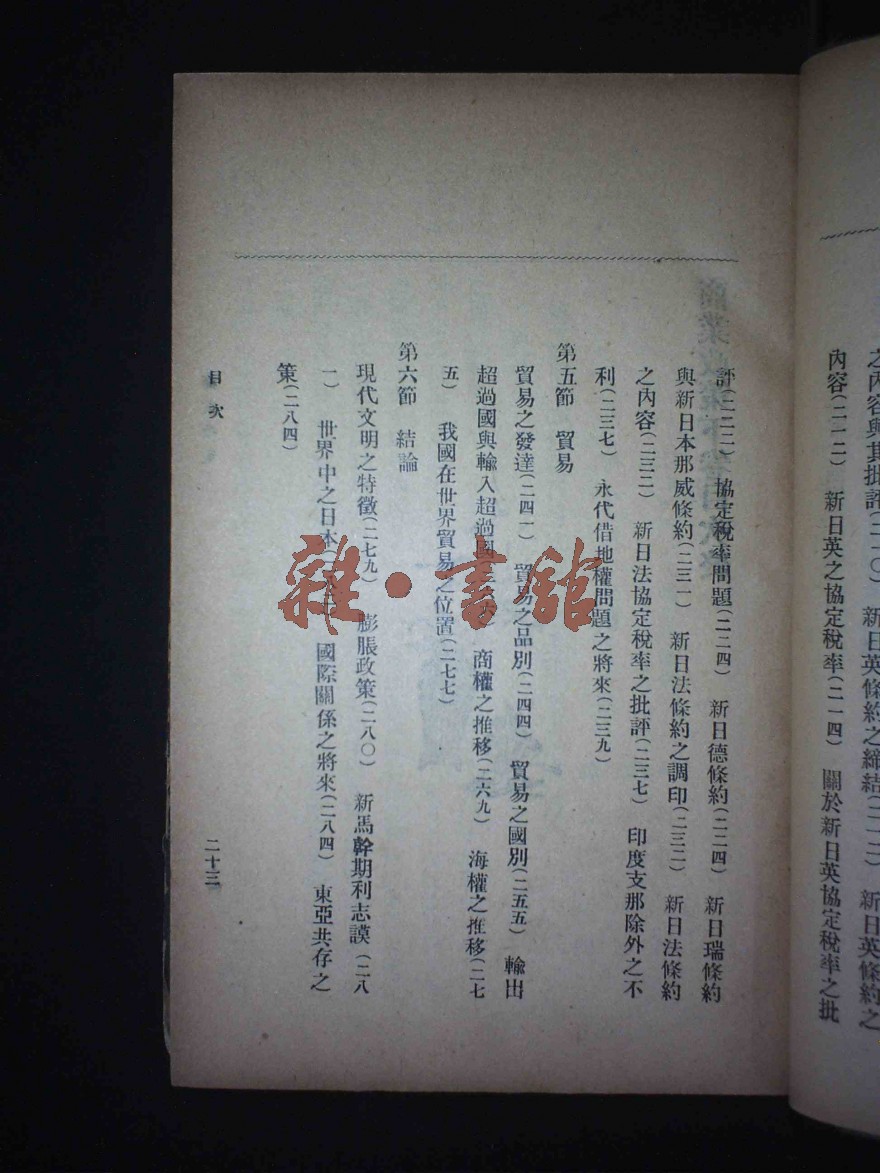 之內容與其批評(二一〇)　新日英條約之締結(二一二)　新日英條約之
內容(二一二)　新日英之協定稅率(二一四)　關於新日英協定稅率之批
評(二二二)　協定稅率問題(二二四)　新日德條約(二二四)　新日瑞條約
與新日本那威條約(二三一)　新日法條約之調印(二三二)　新日法條約
之內容(二三二)　新日法協定稅率之批評(二三七)　印度支那除外之不
利(二三七)　永代借地權問題之將來(二三九)
第五節　貿易
貿易之發達(二四一)　貿易之品別(二四四)　貿易之國別(二五五)　輸出
超過國與輸入超過國　商權之推移(二六九)　海權之推移(二七
五)　我國在世界貿易之位置(二七七)
第六節　結論
現代文明之特徵(二七九)　膨脹政策(二八〇)　新馬幹期利志謨(二八
一)　世界中之日本　國際關係之將來(二八四)　東亞共存之
策(二八四)
目次
二十三
雜·書館